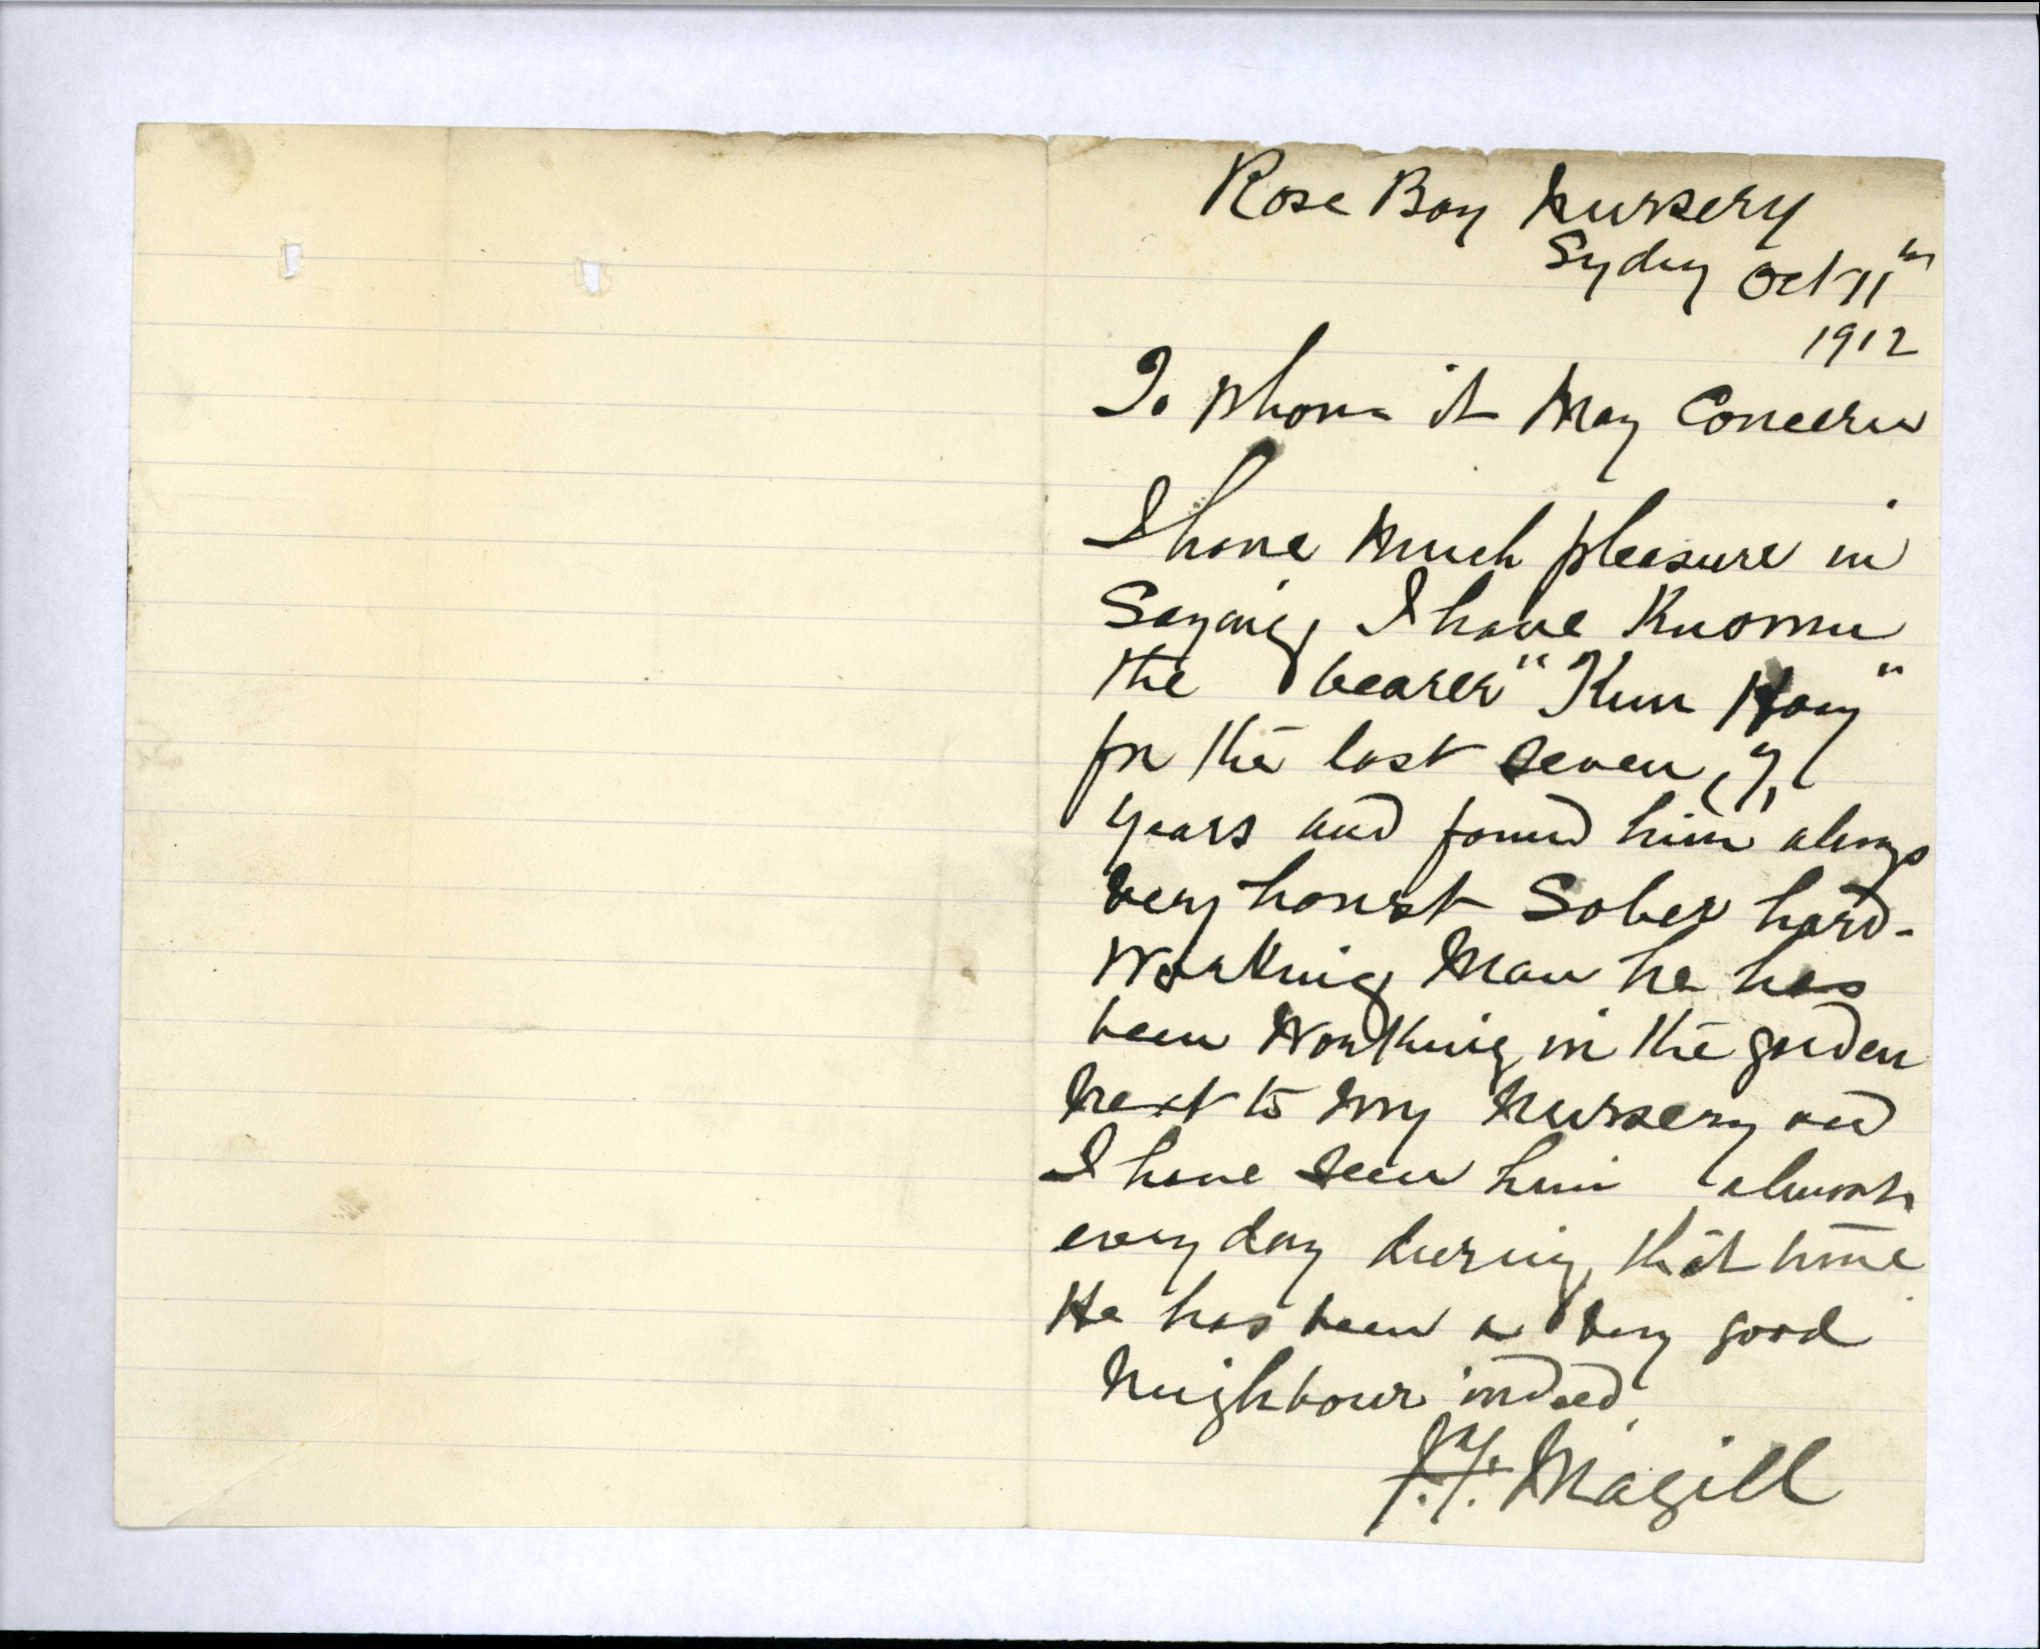 Rose Bay Nursery
Sydney Oct 11th
1912
To Whom it May Concern
I have much pleasure in
Saying I have Known
the bearer "Kum Hoay"
for the last seven (7)
years and found him always
very honest Sober hard-
Working Man he has
been Working in the garden
Next to my Nursery and
I have seen him almost
every day during that time
He has been a very good
Neighbour indeed
Magill